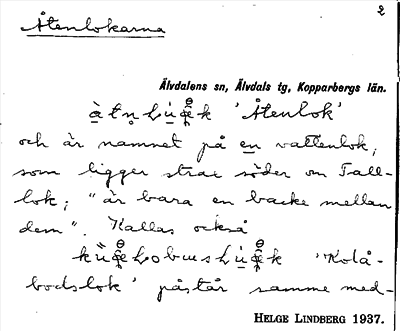 2
Åtenlokarna
Älvdalens sn, Älvdals tg, Kopparbergs län.
'Åtenlok'
och är namnet på en vattenlok,
som ligger strax söder om Tall-
lok; "är bara en backe mellan
dem". Kallas också
'Kolå-
bodslok' påstår samme med-
HELGE LINDBERG 1937.